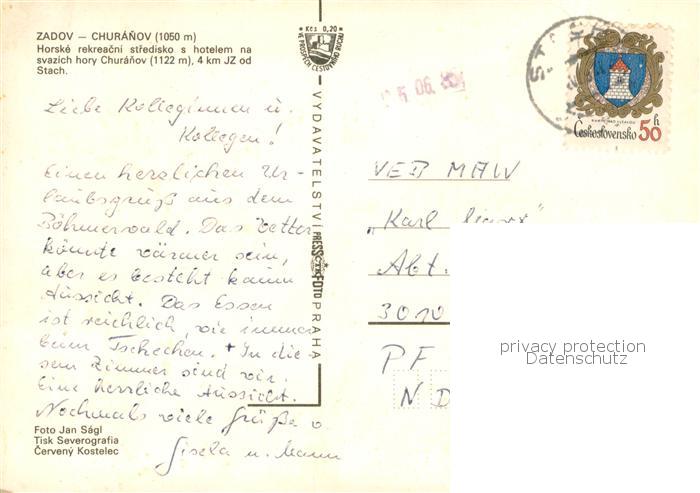 ZADOV — CHURÁŇOV (1050 m)
Horské rekreační středisko s hotelem na
svazích hory Churáňov (1122 m), 4 km JZ od
Stach.
Liebe Kolleginnen u.
Kollegen!
Einen herzlichen Ur-
laubsgruß aus dem
Böhmerwald. Das Wetter
könnte wärmer sein,
aber es besteht kaum
Aussicht. Das Essen
ist reichlich, wie immer
beim Tschechen. + In die-
sem Zimmer sind wir.
Eine herrliche Aussicht.
Nochmals viele Grüße v
Gisela u. Mann
Foto Jan Ságl
Tisk Severografia
Červený Kostelec
Kčs 0,20
VE PROSPĚCH CESTOVNÍHO RUCHU
VYDAVATELSTVÍ PRESSFOTO PRAHA
06.
Československo 50 h
VEB MAW
„Karl Marx"
Abt.
3010
PF
ND
privacy protection
Datenschutz